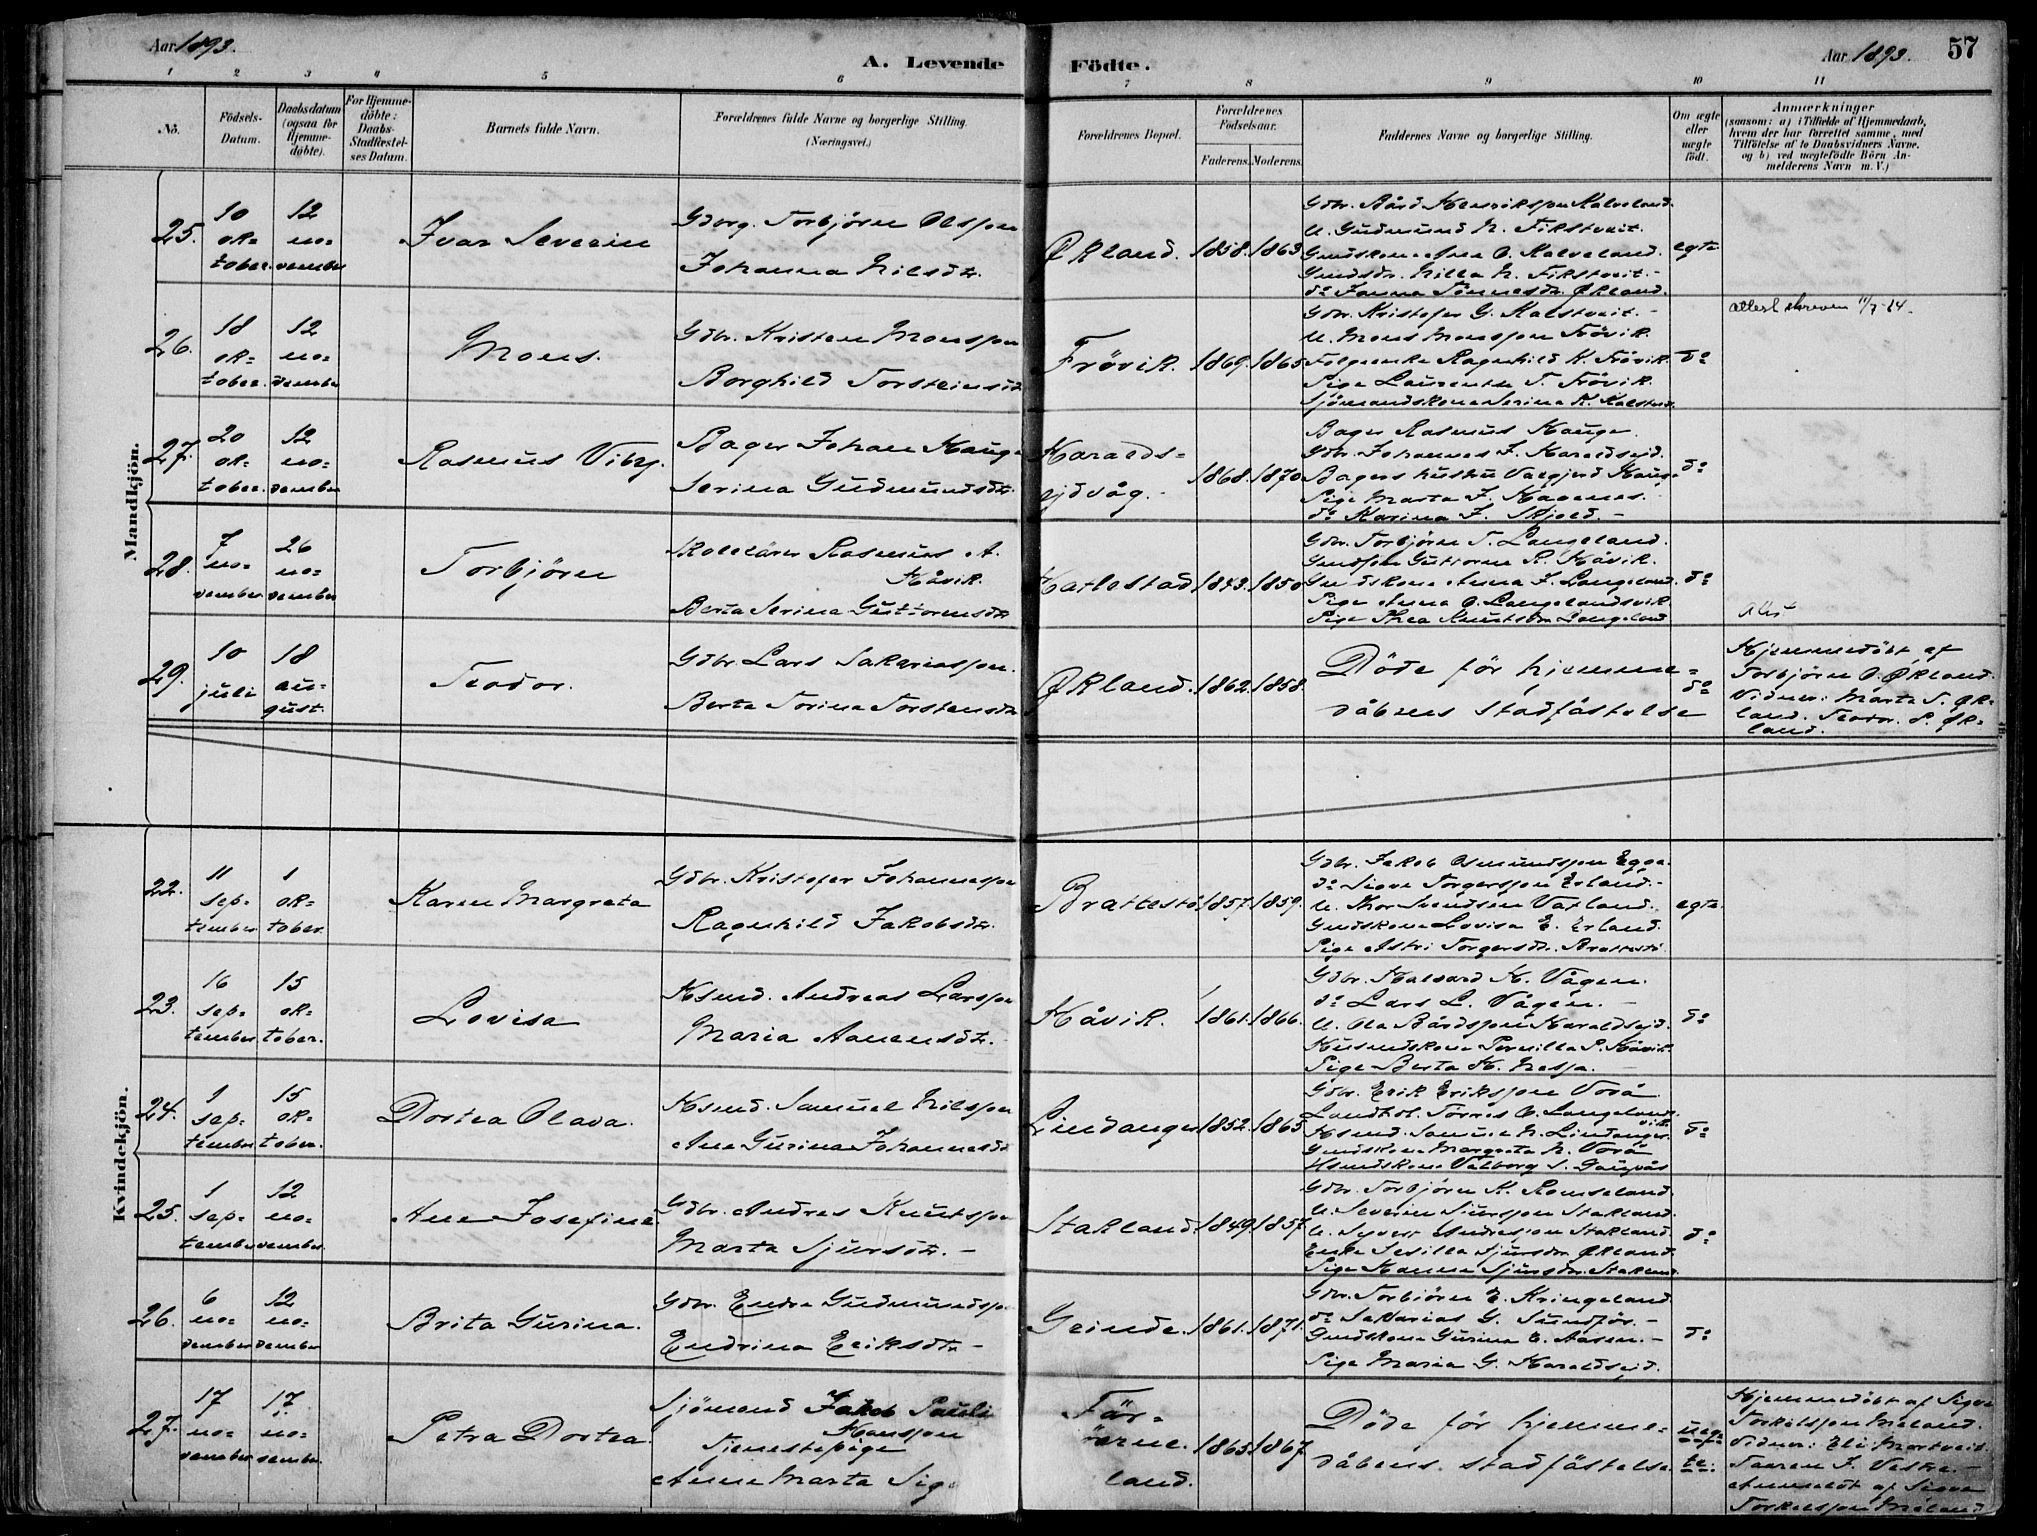 Aar 1893.
A. Levende
Födte.
Aar 1893.
57
1 2 3 4 5 6 7 8 9 10 11
Nö.
Födsels-Datum.
Daabsdatum (ogsaa for Hjemme-döbte).
For Hjemme-döbte: Daabs-Stadfæstel-ses Datum.
Barnets fulde Navn.
Forældrenes fulde Navne og borgerlige Stilling. (Næringsvei.)
Forældrenes Bopæl.
Forældrenes Födselsaar.
Faderens. Moderens.
Faddernes Navne og borgerlige Stilling.
Om ægte eller uægte födt.
Anmærkninger
(saasom: a) i Tilfælde af Hjemmedaab, hvem der har forrettet samme, med Tilföielse af to Daabsvidners Navne, og b) ved uægtefödte Börn An-melderens Navn m. V.)
Mandkjön.
25.
10 ok=tober.
12 no=vember
Ivar Severin
Gdbrg. Torbjörn Olsson
Johanna Nilsdtr.
Økland.
1858. 1863
Gdbr. Bård Henriksson Kalveland.
U. Gudmund N. Fikstveit.
Gmdskona Ana O. Kalveland.
Gmdsdr. Nilla N. Fikstveit.-
do Janna Tönnesdr. Økland.
egte
26.
18 ok=tober.
12 no=vember
Mons.
Gdbr. Kristen Monsson
Borghild Torsteinsdtr
Frövik.
1869. 1865
Gdbr. Kristofer G. Kalstveit.-
U. Mons Monsson Frövik.
Folgeenke Ragnhild K. Frövik.
Pige Laurentse T. Frövik.
Sjömandskona Serina K. Kalstveit.
do
attest skreven 11/7-24.
27.
20 ok=tober.
12 no=vember
Rasmus Viby.
Bager Johan Hauge
Serina Gudmundsdtr.
Haralds=
ejdvåg.-
1868. 1870
Bager Rasmus Hauge.
Gdbr. Johannes J. Haraldsejd.
Bagers hustru Valgjerd Hauge
Pige Marta J. Havnnes.
do Karina J. Skjold.-
do
28.
7 no=vember
26 no=vember
Torbjörn
Skolelärer Rasmus A.
Håvik.
Berta Serina Guttormsdtr
Hatlestad
1843. 1850
Gdbr. Torbjörn T. Langeland.
Gmdsson Guttorm R. Håvik.
Gmdskona Anna J. Langeland.
Pige Anna O. Langelandsvik.
Pige Thea Knutsdtr. Langeland
do
29.
10 juli
18 au=gust.
Teodor.
Gdbr. Lars Sakariasson.
Berta Torina Torstensdtr
Økland.
1862. 1858.
Döde för hjemme=
dåbens stadfästelse
do
Hjemmedöbt af
Torbjörn O. Økland.
Vidner: Marta S. Øk=
land. Teodor S. Øk=
land.
Kvindekjön.
22.
11 sep=tember
1 ok=tober.
Karen Margreta
Gdbr. Kristofer Johannesson
Ragnhild Jakobsdtr.
Brattestö
1857. 1859.
Gdbr. Jakob Osmundsson Egge.
do Sjove Torgersson Erland.-
U. Thor Svendsen Vatland.
Gmdskona Lovisa E. Erland.
Pige Astri Torgersdtr. Brattestö
egte.
23.
16 sep=tember
15 ok=tober.
Lovisa
Hsmd. Andreas Larsson
Maria Aanensdtr.
Håvik.
1861. 1866.
Gdbr. Halvard H. Vågen.
do Lars L. Vågen.-
U. Ola Bårdsson Haraldsejd.
Husmdskona Pernilla P. Håvik.
Pige Berta H. Nesja.-
do
24.
9 sep=tember
15 ok=tober.
Dortea Olava.
Hsmd. Samuel Nilsson
Ane Gurina Johannesdtr
Lindanger
1852. 1865
Gdbr. Erik Eriksson Vorå
Landhdl. Tönnes O. Langelandsvik.
Hsmd. Samuel N. Lindanger.
Gmdskona Margreta N. Vorå
Hsmdskona Valborg S. Gaupås
do
25.
1 sep=tember
12 no=vember.
Ane Josefine
Gdbr. Andres Knutsson
Marta Sjursdtr.-
Stakland.
1849. 1857
Gdbr. Torbjörn K. Romseland.
U. Severin Sjursson Stakland.
U. Syvert Andresson Stakland.
Enke Sesilla Sjursdtr. Økland.
Pige Hanna Sjursdtr. Stakland.
do
26.
6 no=vember
12 no=vember
Brita Gurina.
Gdbr. Endre Gudmundsson
Endrina Eriksdtr-
Grinde.
1861. 1871.
Gdbr. Torbjörn E. Kringeland.
do Sakarias G. Sundför.-
Gmdskona Gurina E. Aasen.-
Pige Maria G. Haraldsejd.
do
27.
17 no=vember
17 no=vember.
Petra Dortea.
Sjömand Jakob Pauli
Hansson
Tjenestepige
Anne Marta Sig
För=
land.
1865. 1867
Döde för hjemme=
dåbens stadfästelse.
uegte.
Hjemmedöbt af Sigve
Torkelsson Meland.
Vidner: Eli Martveit.
Taaren J. Vestre.-
Anmeldt af Sigve
Torkelsson Meland